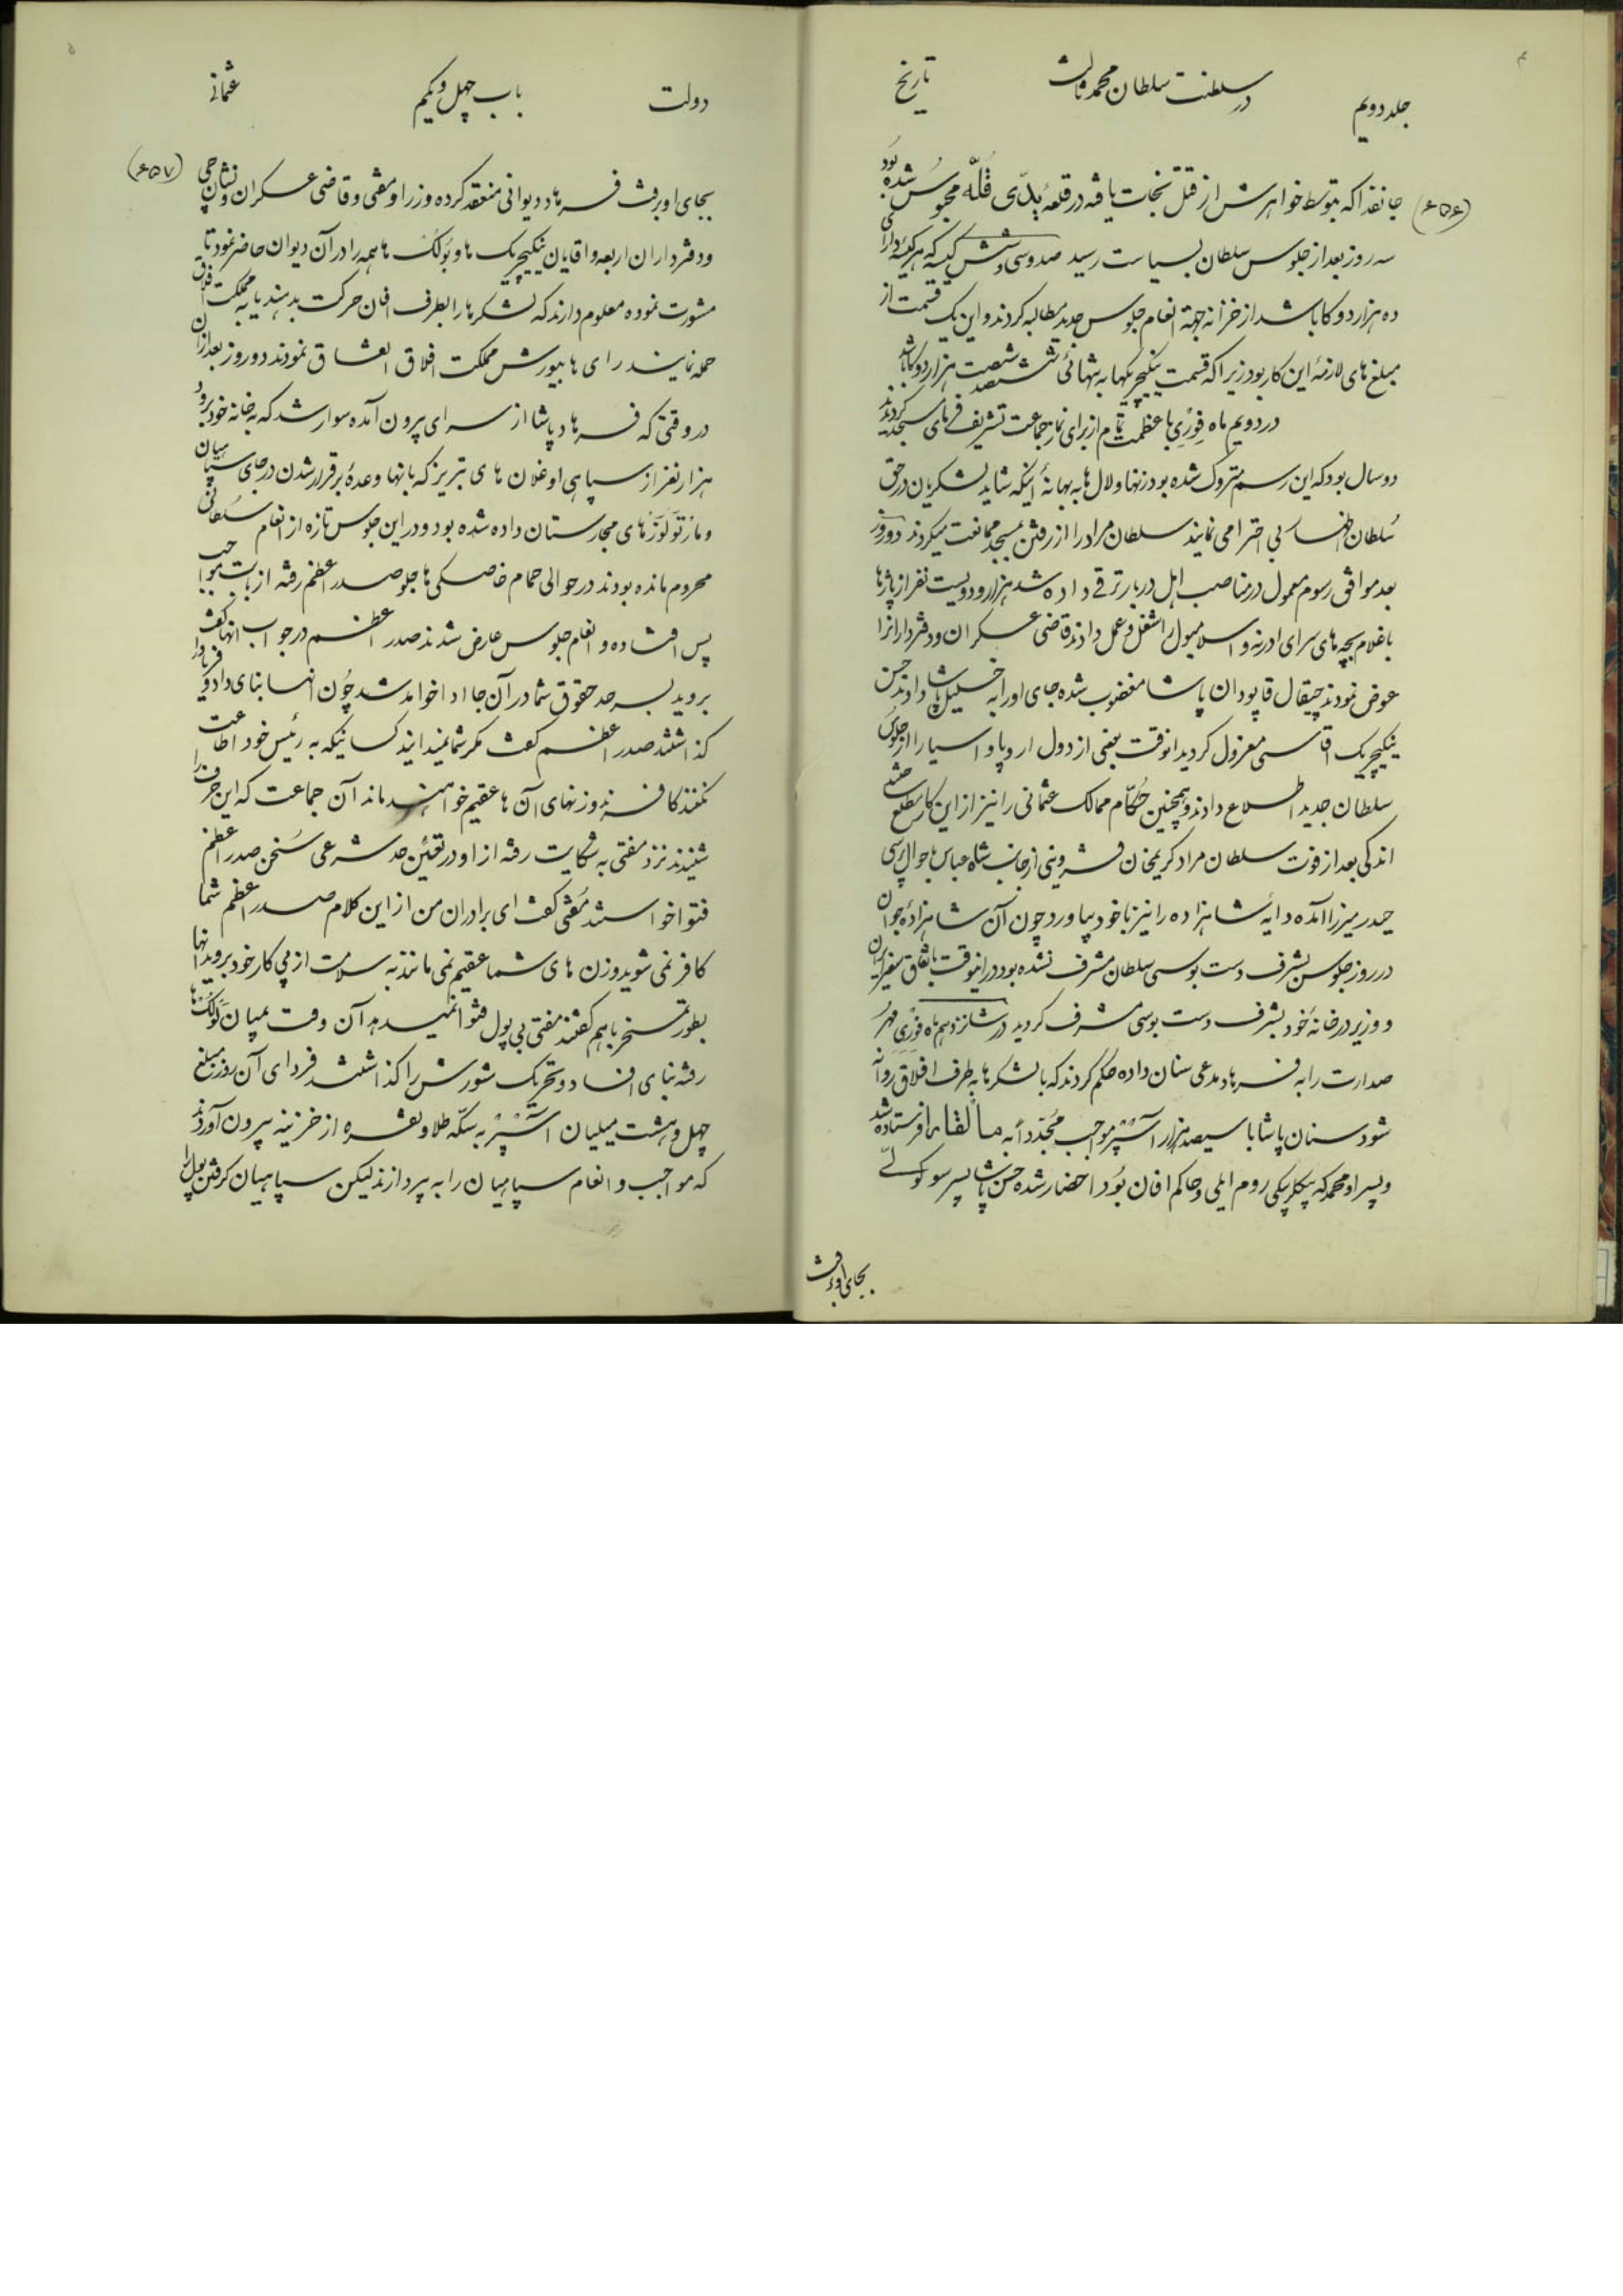 جلد دویم
در سلطنت سلطان محمد ثالث
تاریخ
(۶۵۶)
جانفدا که بتوسط خواهرش از قتل نجات یافته در قلعهٔ یدّی قلّه محبوس شده بود
سه روز بعد از جلوس سلطان بسیاست رسید صد و سی و شش کیسه که هر کیسه دارای
ده هزار دوکا باشد از خزانه جهة انعام جلوس جدید مطالبه کردند و این یک قسمت از
مبلغ های لازمهٔ این کار بود زیرا که قسمت ینکیچریها به تنهائی ششصد شصت هزار دوکا باشد
در دویم ماه فوری با عظمت تمام از برای نماز جماعت تشریف فرمای مسجد کردیدند
دو سال بود که این رسم متروک شده بود زنها و لال ها به بهانهٔ اینکه شاید لشکریان در حق
سلطان اظهار بی احترامی نمایند سلطان مراد را از رفتن مسجد ممانعت میکردند دو روز
بعد موافق رسوم معمول در مناصب اهل دربار ترقی داده شد هزار و دویست نفر از پاژها
یا غلام بچه های سرای ادرنه و اسلامبول را شغل و عمل دادند قاضی عسکران و دفتردارانرا
عوض نمودند چیقال قاپودان پاشا مغضوب شده جای او را به خلیل پاشا دادند حسن
ینکیچریک آقاسی معزول کردید آنوقت بعضی از دول اروپا و آسیا را از جلوس
سلطان جدید اطلاع دادند و همچنین حکّام ممالک عثمانی را نیز از این کار مطلع ساختند
اندکی بعد از فوت سلطان مراد کریمخان قزوینی از جانب شاه عباس باحوال پرسی
حیدر میرزا آمده دایهٔ شاهزاده را نیز با خود بیاورد چون آن شاهزادهٔ جوان
در روز جلوس بشرف دست بوسی سلطان مشرف نشده بود در اینوقت باتفاق سفیر ایران
و وزیر در خانهٔ خود بشرف دست بوسی مشرف کردید در شانزدهم ماه فوری مهر
صدارت را به فرهاد مدعی سنان داده حکم کردند که با لشکرها به طرف افلاق روانه
شود سنان پاشا با سیصد هزار آسپر مواجب مجدّداً به مالقارا فرستاده شد
و پسر او محمد که بیکلربیکی روم ایلی و حاکم افان بود احضار شده حسن پاشا پسر سوکوللی
بجای او رفت
دولت
باب چهل و یکم
عثمانی
(۶۵۷)
بجای او رفت فرهاد دیوانی منعقد کرده وزرا و مفتی و قاضی عسکران و نشانچی
و دفترداران اربعه و آقایان ینکیچریک ها و بولک ها همه را در آن دیوان حاضر نمود تا
مشورت نموده معلوم دارند که لشکرها را بطرف افان حرکت بدهند یا به مملکت افلاق
حمله نمایند رای ها بیورش مملکت افلاق اتفاق نمودند دو روز بعد از آن
در وقتی که فرهاد پاشا از سرای بیرون آمده سوار شد که به خانه خود برود
هزار نفر از سپاهی اوغلان های تبریز که بانها وعدهٔ برقرار شدن در جای سپاهیان
و مارتولوزهای مجارستان داده شده بود و در این جلوس تازه از انعام سلطانی
محروم مانده بودند در حوالی حمام خاصکی ها جلو صدر اعظم رفته از بابت مواجب
پس افتاده و انعام جلوس عارض شدند صدر اعظم در جواب انها گفت
بروید بسرحد حقوق شما در آن جا ادا خواهد شد چون آنها بنای داد و فریاد را
گذاشتند صدر اعظم گفت مگر شما نمیدانید کسانیکه به رئیس خود اطاعت
نکنند کافرند و زنهای آن ها عقیم خواهند ماند آن جماعت که این حرف را
شنیدند نزد مفتی به شکایت رفته از او در تعیین حد شرعی سخن صدر اعظم
فتوا خواستند مفتی گفت ای برادران من از این کلام صدر اعظم شما
کافر نمی شوید و زن های شما عقیم نمی مانند به سلامت از پی کار خود بروید آنها
بطور تمسخر باهم گفتند مفتی بی پول فتوا نمیدهد آن وقت بمیان بولک ها
رفته بنای افساد و تحریک شورش را گذاشتند فردای آن روز مبلغ
چهل و هشت میلیان آسپر به سکّه طلا و نقره از خزینه بیرون آوردند
که مواجب و انعام سپاهیان را به پردازند لیکن سپاهیان گرفتن پول را